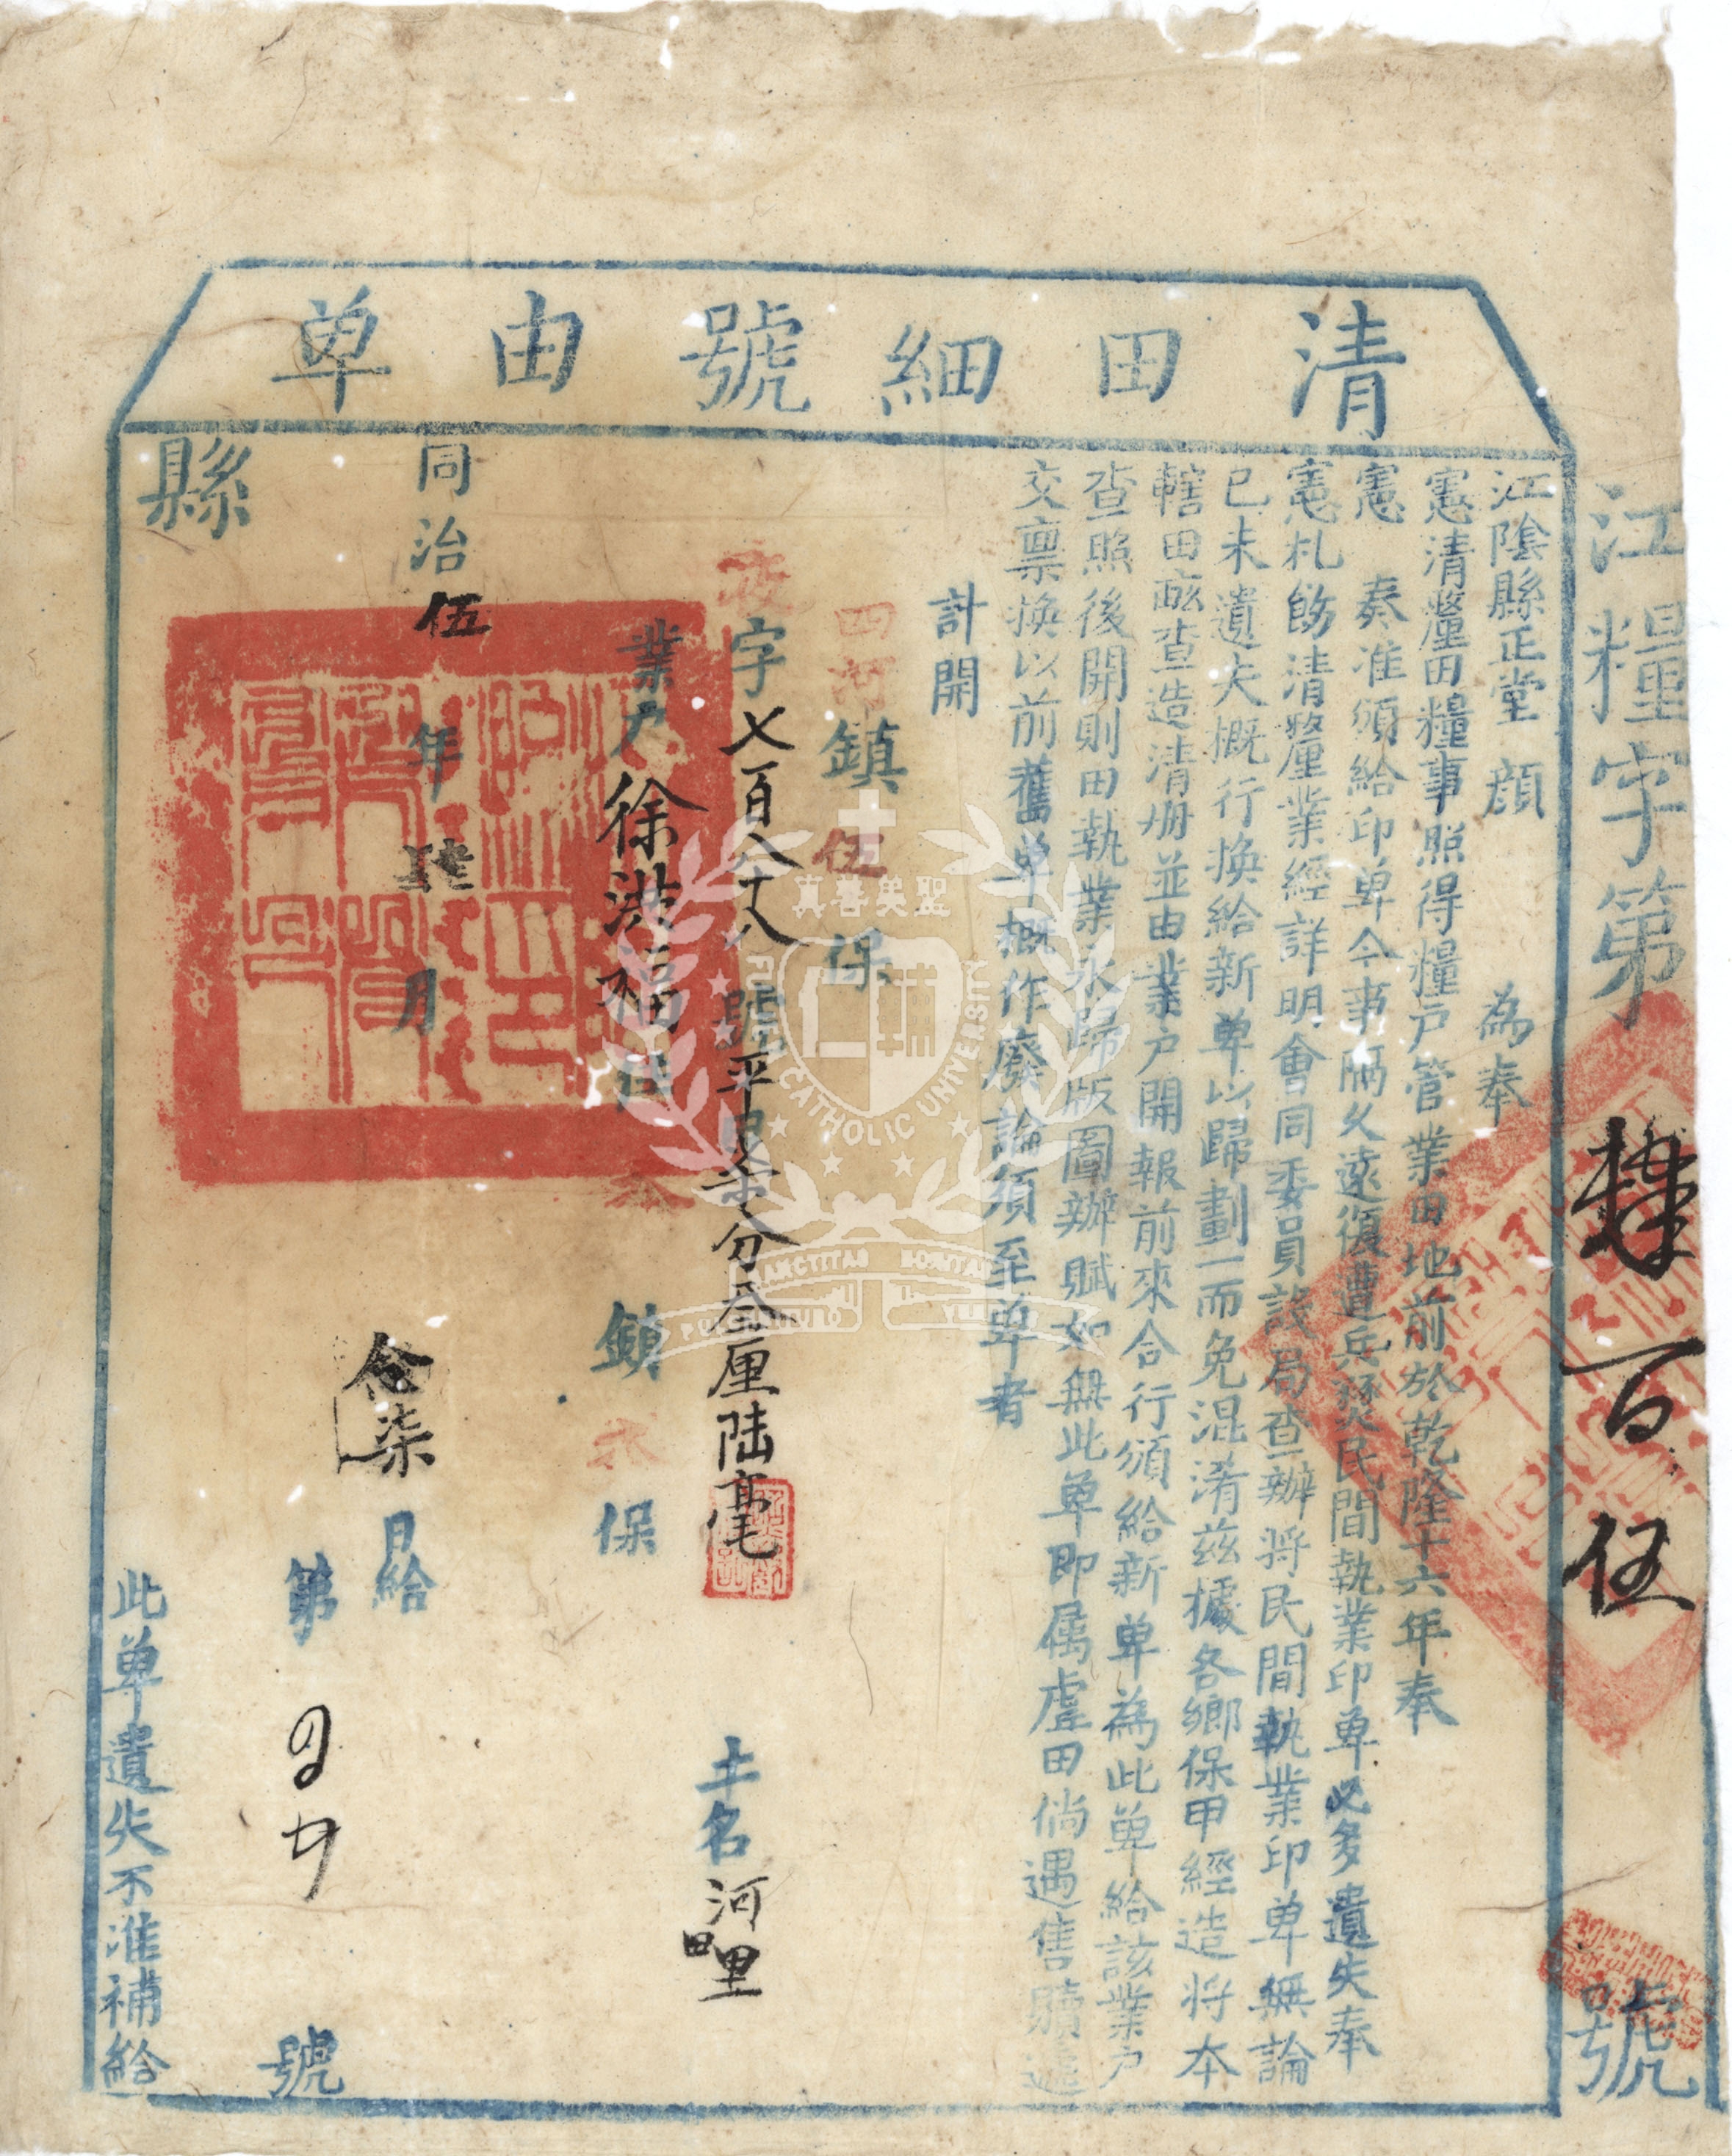 清田細號由單
江糧字第 百伍 號
江陰縣正堂顔 為奉
憲清釐田糧事照得糧户管業田地前於乾隆十六年奉
憲 奏准頒給印單今事隔久遠復遭兵燹民間執業印單必多遺失奉
憲札飭清釐業經詳明會同委員設局查辦將民間執業印單無論
已未遺失概行換給新單以歸劃一而免混淆兹據各鄉保甲經造將本
轄田畝查造清册並由業户開報前來合行頒給新單為此單給該業户
查照後開則田執業永歸版圖辦賦如無此單即属虚田倘遇售贖逓
交禀換以前舊單概作廢論須至單者
計開
四河鎮伍保
字七百八十八號平田柒分叁厘陸毫 土名河里田
業户徐洪福住 鎮 保
同治伍年 月念柒日給
縣
第 號
此單遺失不准補給
真善美聖
FU JEN CATHOLIC UNIVERSITY